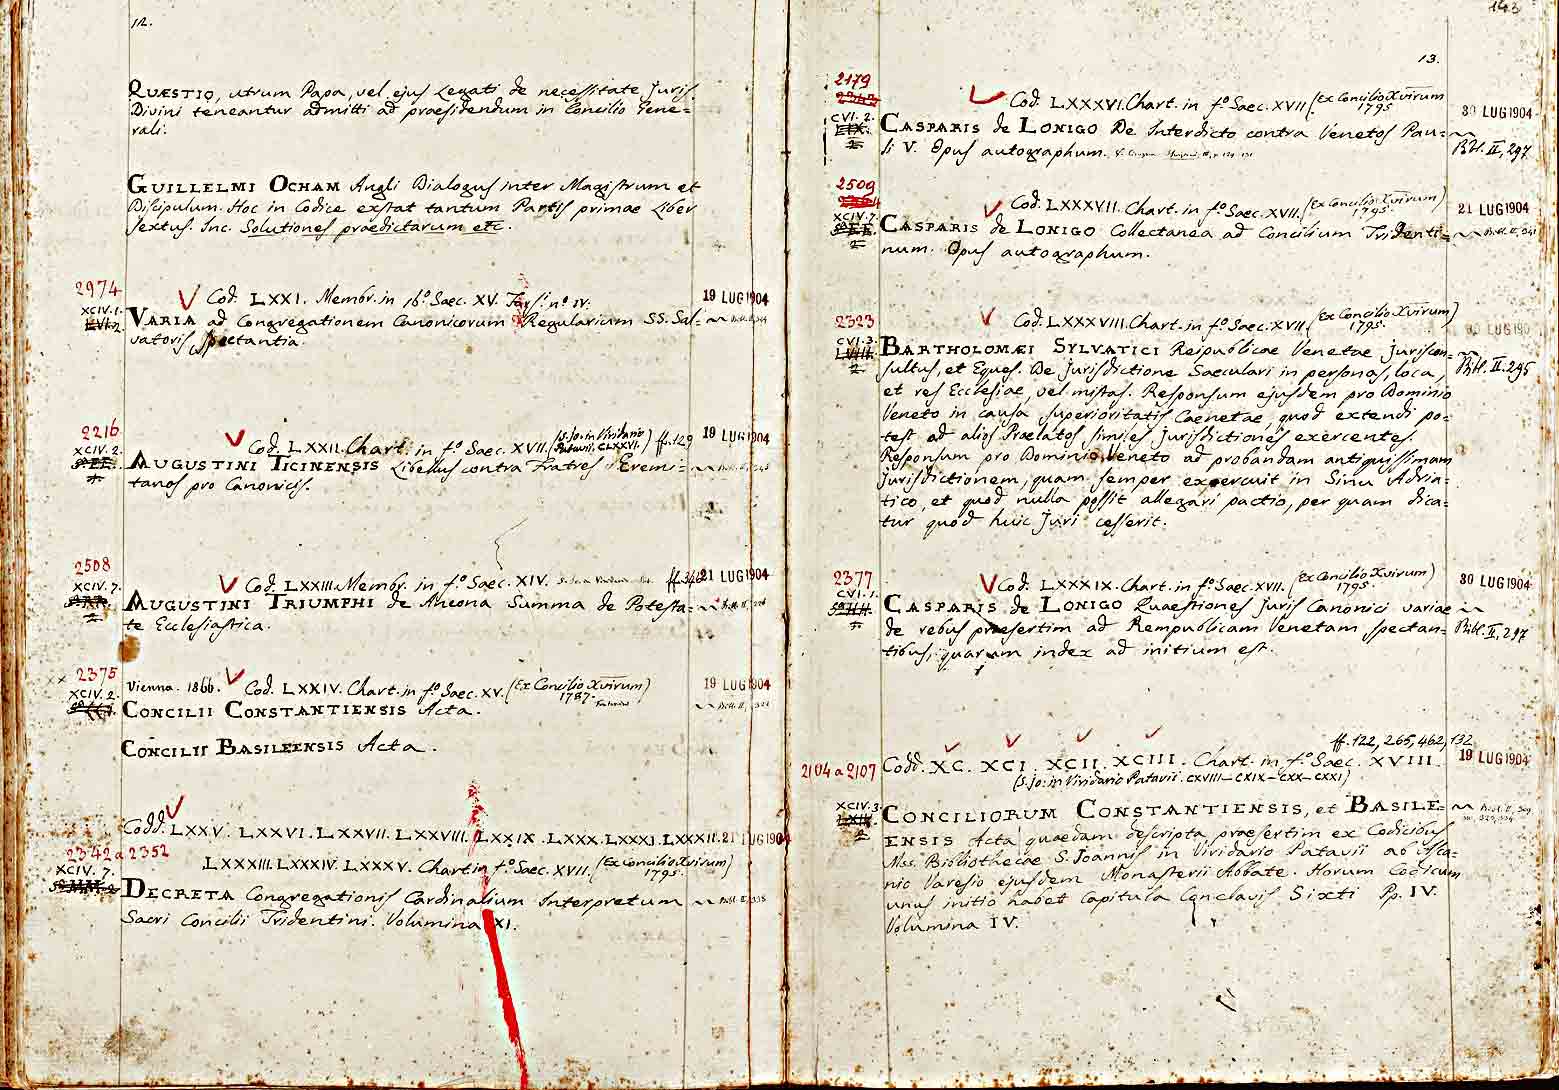 12.
QUÆSTIO, utrum Papa, vel ejus Legati de necessitate juris
Divini teneantur admitti ad praesidendum in Concilio Gene=
rali.
GUILLELMI OCHAM Angli Dialogus inter Magistrum et
Discipulum. Hoc in Codice exstat tantum Partis primae Liber
sextus. Inc. Solutiones praedictarum etc.
2974
XCIV. 1.
Cod. LXXI. Membr. in 16.º Saec. XV. nº IV.
19 LUG 1904
VARIA ad Congregationem Canonicorum Regularium SS. Sal=
vatoris spectantia.
2216
XCIV. 2.
Cod. LXXII. Chart. in fº Saec. XVII. (S. Jo: in Viridario Patavii. CLXXVI.) ff. 129
19 LUG 1904
AUGUSTINI TICINENSIS Libellus contra Fratres Eremi=
tanos pro Canonicis.
2508
XCIV. 7.
Cod. LXXIII. Membr. in fº Saec. XIV.
21 LUG 1904
AUGUSTINI TRIUMPHI de Ancona Summa de Potesta=
te Ecclesiastica.
2375
XCIV. 2.
Vienna. 1866. Cod. LXXIV. Chart. in fº Saec. XV. (Ex Concilio Xvirum) 1787.
19 LUG 1904
CONCILII CONSTANTIENSIS Acta.
CONCILII BASILEENSIS Acta.
Codd. LXXV. LXXVI. LXXVII. LXXVIII. LXXIX. LXXX. LXXXI. LXXXII.
21 LUG 1904
2342 a 2352
XCIV. 7.
LXXXIII. LXXXIV. LXXXV. Chart. in fº Saec. XVII. (Ex Concilio Xvirum) 1795.
DECRETA Congregationis Cardinalium Interpretum
Sacri Concilii Tridentini. Volumina XI.
143
13.
2179
CVI. 2.
Cod. LXXXVI. Chart. in fº Saec. XVII (Ex Concilio Xvirum 1795
30 LUG 1904
CASPARIS de LONIGO De Interdicto contra Venetos Pau=
li V. Opus autographum.
Bibl. II, 297
2509
XCIV. 7.
Cod. LXXXVII. Chart. in fº Saec. XVII. (Ex Concilio Xvirum) 1795
21 LUG 1904
CASPARIS de LONIGO Collectanea ad Concilium Tridenti=
num. Opus autographum.
2323
CVI. 3.
Cod. LXXXVIII. Chart. in fº Saec. XVII (Ex Concilio Xvirum) 1795.
BARTHOLOMÆI SYLVATICI Reipublicae Venetae Juriscon=
sultus, et Eques. De Jurisdictione Saeculari in personas, loca,
et res Ecclesiae, vel mistas. Responsum ejusdem pro Dominio
Veneto in causa superioritatis Caenetae, quod extendi po=
test ad alios Praelatos similes jurisdictiones exercentes.
Responsum pro Dominio Veneto ad probandam antiquissimam
jurisdictionem, quam semper exercuit in Sinu Adria=
tico, et quod nulla possit allegari pactio, per quam dica=
tur quod huic juri cesserit.
Bibl. II. 295
2377
CVI. 1.
Cod. LXXXIX. Chart. in fº Saec. XVII. (Ex Concilio Xvirum) 1795.
30 LUG 1904
CASPARIS de LONIGO Quaestiones juris Canonici variae
de rebus praesertim ad Rempublicam Venetam spectan=
tibus, quarum index ad initium est.
Bibl. II, 297
ff. 122, 265, 462, 132
2104 a 2107
Codd. XC. XCI. XCII. XCIII. Chart. in fº Saec. XVIII.
19 LUG 1904
(S. Jo: in Viridario Patavii. CXVIII–CXIX–CXX–CXXI)
XCIV. 3.
CONCILIORUM CONSTANTIENSIS, et BASILE=
ENSIS Acta quaedam descripta praesertim ex Codicibus
Mss. Bibliothecae S. Joannis in Viridario Patavii ab Asca=
nio Varesio ejusdem Monasterii Abbate. Horum Codicum
unus initio habet Capitula Conclavis Sixti Pp. IV.
Volumina IV.